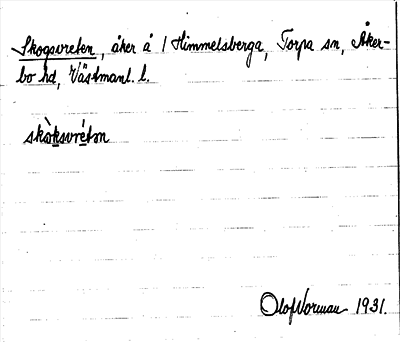 Skogsvreten, åker å 1 Himmelsberga, Torpa sn, Åker-
bo hd, Västmanl. l.
skò̱ksvré̱tən
Olof Norman 1931.